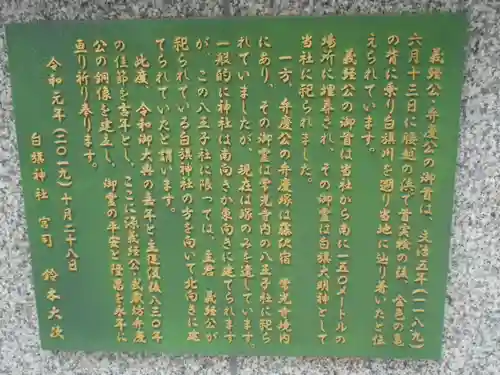 義経公・弁慶公の御首は、文治五年(一一八九)
六月十三日に腰越の浜で首実検の後、金色の亀
の背に乗り白旗川を遡り当地に辿り着いたと伝
えられています。
義経公の御首は当社から南に一五〇メートルの
場所に埋葬され、その御霊は白旗大明神として
当社に祀られました。
一方、弁慶公の弁慶塚は藤沢宿 常光寺境内
にあり、その御霊は常光寺内の八王子社に祀ら
れていましたが、現在は塚のみを遺しています。
一般的に神社は南向きか東向きに建てられます
が、この八王子社に限っては、主君 義経公が
祀られている白旗神社の方を向いて北向きに建
てられていたと謂います。
此度、令和御大典の嘉年と主遷復後八三〇年
の佳節を吉年とし、ここに源義経公・武蔵坊弁慶
公の銅像を建立し、御霊の平安と隆昌を永年に
亘り祈り奉ります。
令和元年(二〇一九)十月二十八日
白旗神社 宮司 鈴木大次